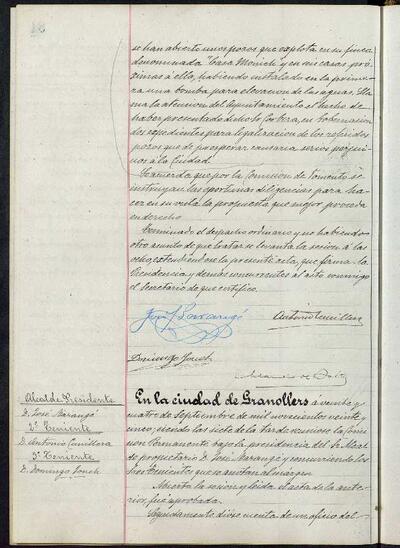 se han abierto unos pozos que explota en su finca
denominada "Casa Monich" y en seis casas pró-
ximas a ella, habiendo instalado en la prime-
ra una bomba para elevacion de las aguas. Lla-
ma la atencion del Ayuntamiento el hecho de
haber presentado dicho Sr. Corbera, en Gobernacion
dos expedientes para legalizacion de los referidos
pozos que de prosperar causaria serios perjui-
cios á la Ciudad.
Se acuerda que por la Comision de Fomento se
instruyan las oportunas diligencias para ha-
cer en su vista la propuesta que mejor proceda
en derecho
Terminado el despacho ordinario y no habiendo
otro asunto de que tratar se levanta la sesion á las
ocho, extendiendose la presente acta, que firma la
Presidencia y demás concurrentes al acto conmigo
el Secretario de que certifico.
José Barangé
Antonio Cumillera
Domingo Jonch
Alcalde Presidente
D. José Barangé
2º Teniente
D. Antonio Cumillera
3º Teniente
D. Domingo Jonch
En la ciudad de Granollers á veinte y
cuatro de Septiembre de mil novecientos veinte
cinco, siendo las siete de la tarde reunióse la Comi-
sion Permanente bajo la presidencia del Sr. Alcal-
de propietario D. José Barangé y concurriendo los
Sres. Tenientes, que se anotan al margen.
Abierta la sesion y leida el acta de la ante-
rior, fué aprobada.
Seguidamente dióse cuenta de un oficio del